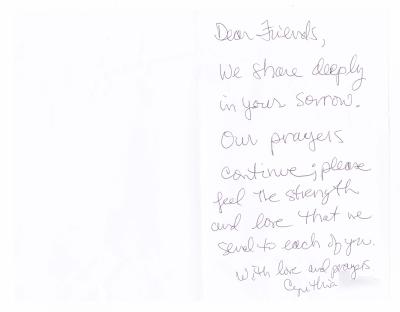 Dear Friends,
We share deeply
in your sorrow.
Our prayers
continue; please
feel the strength
and love that we
send to each of you.
With love and prayers
Cynthia